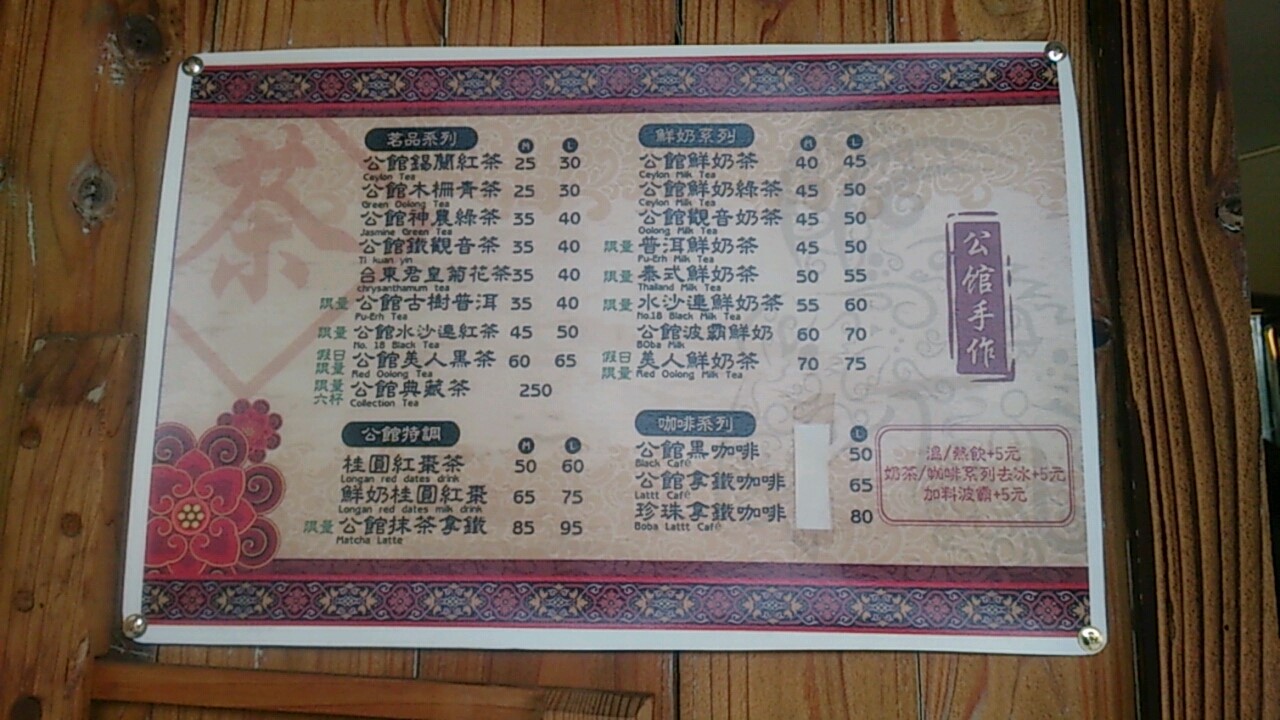 茶
茗品系列 M L
公館錫蘭紅茶 25 30
Ceylon Tea
公館木柵青茶 25 30
Green Oolong Tea
公館神農綠茶 35 40
Jasmine Green Tea
公館鐵觀音茶 35 40
Ti kuan yin
台東君皇菊花茶 35 40
chrysanthamum tea
限量 公館古樹普洱 35 40
Pu-Erh Tea
限量 公館水沙連紅茶 45 50
No. 18 Black Tea
假日限量 公館美人黑茶 60 65
Red Oolong Tea
限量六杯 公館典藏茶 250
Collection Tea
公館特調 M L
桂圓紅棗茶 50 60
Longan red dates drink
鮮奶桂圓紅棗 65 75
Longan red dates milk drink
限量 公館抹茶拿鐵 85 95
Matcha Latte
鮮奶系列 M L
公館鮮奶茶 40 45
Ceylon Milk Tea
公館鮮奶綠茶 45 50
Ceylon Milk Tea
公館觀音奶茶 45 50
Oolong Milk Tea
限量 普洱鮮奶茶 45 50
Pu-Erh Milk Tea
限量 泰式鮮奶茶 50 55
Thailand Milk Tea
限量 水沙連鮮奶茶 55 60
No.18 Black Milk Tea
公館波霸鮮奶 60 70
BOba Milk
假日限量 美人鮮奶茶 70 75
Red Oolong Milk Tea
咖啡系列 L
公館黑咖啡 50
Black Café
公館拿鐵咖啡 65
Lattt Café
珍珠拿鐵咖啡 80
Boba Lattt Café
公館手作
溫/熱飲+5元
奶茶/咖啡系列去冰+5元
加料波霸+5元